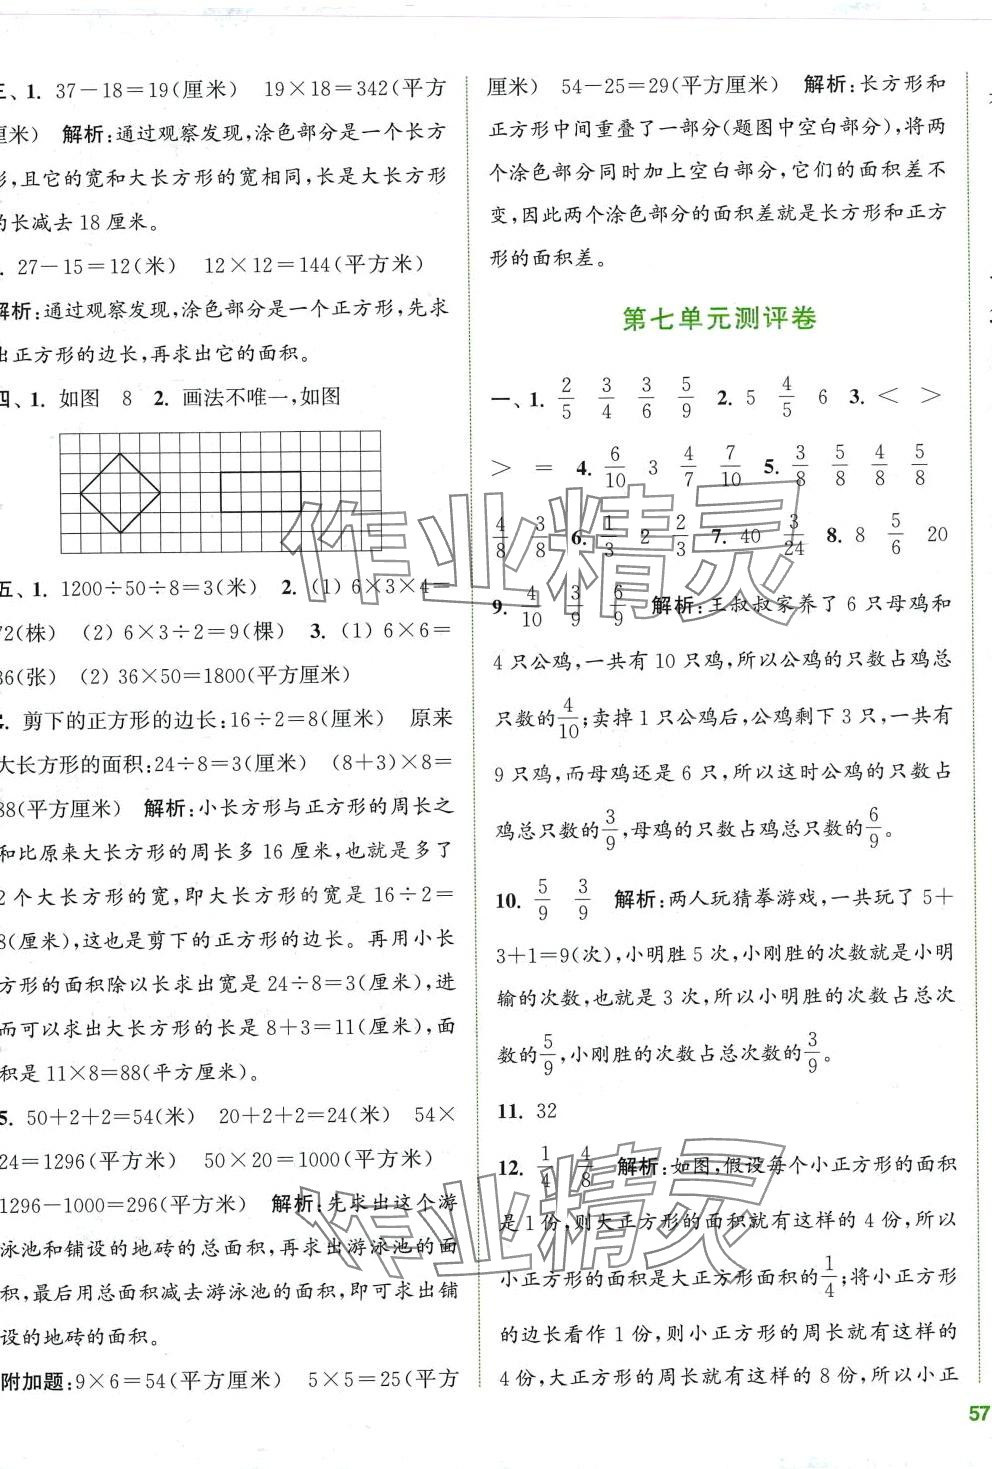 三、1. 37－18＝19(厘米)　19×18＝342(平方
厘米)　解析:通过观察发现,涂色部分是一个长方
形,且它的宽和大长方形的宽相同,长是大长方形
的长减去 18 厘米。
. 27－15＝12(米)　12×12＝144(平方米)
解析:通过观察发现,涂色部分是一个正方形,先求
出正方形的边长,再求出它的面积。
四、1. 如图　8　2. 画法不唯一,如图
五、1. 1200÷50÷8＝3(米)　2. (1) 6×3×4＝
72(株)　(2) 6×3÷2＝9(棵)　3. (1) 6×6＝
36(张)　(2) 36×50＝1800(平方厘米)
. 剪下的正方形的边长:16÷2＝8(厘米)　原来
大长方形的面积:24÷8＝3(厘米)　(8＋3)×8＝
88(平方厘米)　解析:小长方形与正方形的周长之
和比原来大长方形的周长多 16 厘米,也就是多了
2 个大长方形的宽,即大长方形的宽是 16÷2＝
8(厘米),这也是剪下的正方形的边长。再用小长
方形的面积除以长求出宽是 24÷8＝3(厘米),进
而可以求出大长方形的长是 8＋3＝11(厘米),面
积是 11×8＝88(平方厘米)。
5. 50＋2＋2＝54(米)　20＋2＋2＝24(米)　54×
24＝1296(平方米)　50×20＝1000(平方米)
1296－1000＝296(平方米)　解析:先求出这个游
泳池和铺设的地砖的总面积,再求出游泳池的面
积,最后用总面积减去游泳池的面积,即可求出铺
设的地砖的面积。
附加题:9×6＝54(平方厘米)　5×5＝25(平方
厘米)　54－25＝29(平方厘米)　解析:长方形和
正方形中间重叠了一部分(题图中空白部分),将两
个涂色部分同时加上空白部分,它们的面积差不
变,因此两个涂色部分的面积差就是长方形和正方
形的面积差。
第七单元测评卷
一、1. 2/5　3/4　3/6　5/9　2. 5　4/5　6　3. ＜　＞
＞　＝　4. 6/10　3　4/7　7/10　5. 3/8　5/8　4/8　5/8
4/8　3/8　6. 1/3　2　2/3　7. 40　3/24　8. 8　5/6　20
9. 4/10　3/9　6/9　解析:王叔叔家养了 6 只母鸡和
4 只公鸡,一共有 10 只鸡,所以公鸡的只数占鸡总
只数的4/10;卖掉 1 只公鸡后,公鸡剩下 3 只,一共有
9 只鸡,而母鸡还是 6 只,所以这时公鸡的只数占
鸡总只数的3/9,母鸡的只数占鸡总只数的6/9。
10. 5/9　3/9　解析:两人玩猜拳游戏,一共玩了 5＋
3＋1＝9(次),小明胜 5 次,小刚胜的次数就是小明
输的次数,也就是 3 次,所以小明胜的次数占总次
数的5/9,小刚胜的次数占总次数的3/9。
11. 32
12. 1/4　4/8　解析:如图,假设每个小正方形的面积
是 1 份,则大正方形的面积就有这样的 4 份,所以
小正方形的面积是大正方形面积的1/4;将小正方形
的边长看作 1 份,则小正方形的周长就有这样的
4 份,大正方形的周长就有这样的 8 份,所以小正
57
作业精灵
作业精灵